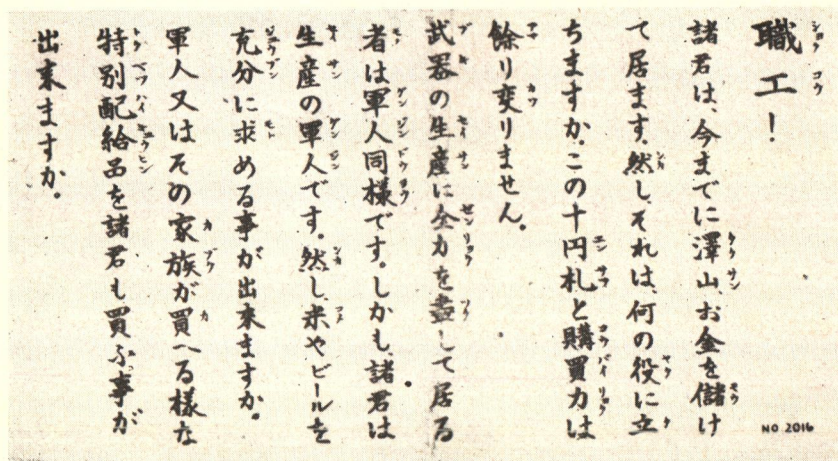 職工ー
諸君は、今までに澤山お金を儲け
て居ます然しそれは何の役に立
ちますか。この十円札と購買力は
餘り変りません。
武器の生産に全力を盡して居る
者は軍人同様です。しかし諸君は
生産の軍人です。然し米やビールを
充分に求める事が出来ますか。
軍人又はその家族が買る様な
特別配給品を諸君 買ふ事が
出来ますか。
NO 2016